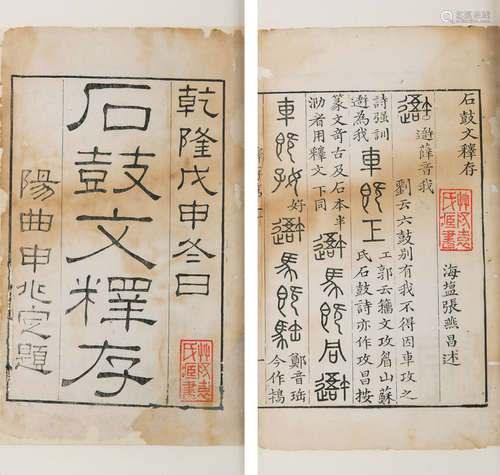 乾隆戊申冬日
石鼓文釋存
陽曲申兆定題
石鼓文釋存
海塩張燕昌述
薛音我
劉云六鼓别有我不得因車攻之
詩强訓
為我
車既工
工郭云籒文攻眉山蘇
氏石鼓詩亦作攻昌按
篆文奇古及石本半
泐者用釋文下同
馬既同
車既好
好
馬既
鄭音珤
今作